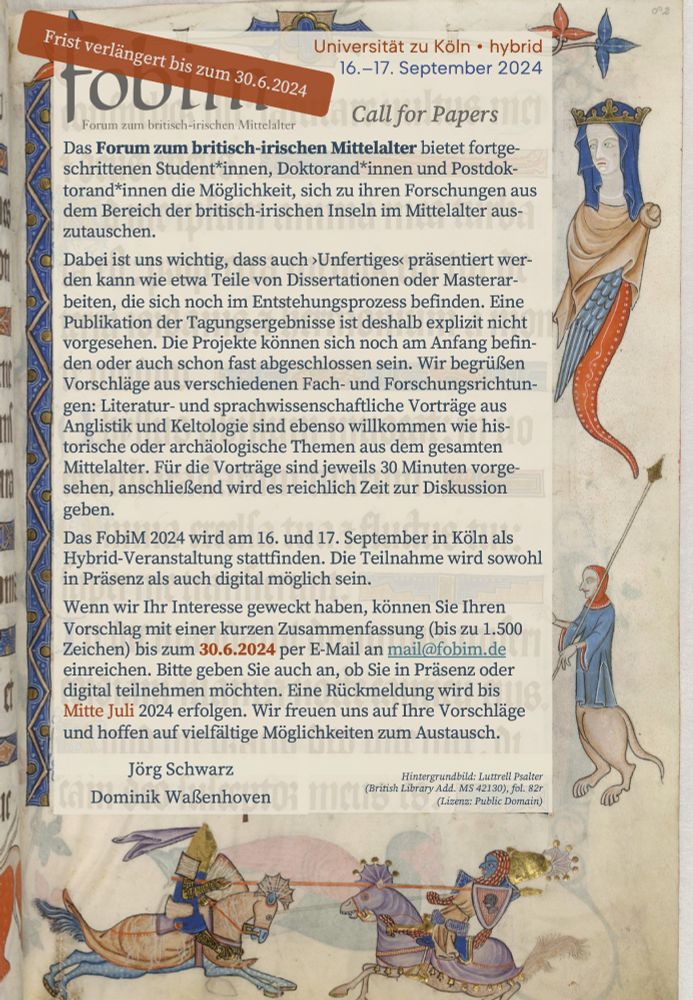 Frist verlängert bis zum 30.6.2024
Universität zu Köln • hybrid
16.–17. September 2024
fobim
Forum zum britisch-irischen Mittelalter
Call for Papers
Das Forum zum britisch-irischen Mittelalter bietet fortge-
schrittenen Student*innen, Doktorand*innen und Postdok-
torand*innen die Möglichkeit, sich zu ihren Forschungen aus
dem Bereich der britisch-irischen Inseln im Mittelalter aus-
zutauschen.
Dabei ist uns wichtig, dass auch ›Unfertiges‹ präsentiert wer-
den kann wie etwa Teile von Dissertationen oder Masterar-
beiten, die sich noch im Entstehungsprozess befinden. Eine
Publikation der Tagungsergebnisse ist deshalb explizit nicht
vorgesehen. Die Projekte können sich noch am Anfang befin-
den oder auch schon fast abgeschlossen sein. Wir begrüßen
Vorschläge aus verschiedenen Fach- und Forschungsrichtun-
gen: Literatur- und sprachwissenschaftliche Vorträge aus
Anglistik und Keltologie sind ebenso willkommen wie his-
torische oder archäologische Themen aus dem gesamten
Mittelalter. Für die Vorträge sind jeweils 30 Minuten vorge-
sehen, anschließend wird es reichlich Zeit zur Diskussion
geben.
Das FobiM 2024 wird am 16. und 17. September in Köln als
Hybrid-Veranstaltung stattfinden. Die Teilnahme wird sowohl
in Präsenz als auch digital möglich sein.
Wenn wir Ihr Interesse geweckt haben, können Sie Ihren
Vorschlag mit einer kurzen Zusammenfassung (bis zu 1.500
Zeichen) bis zum 30.6.2024 per E-Mail an mail@fobim.de
einreichen. Bitte geben Sie auch an, ob Sie in Präsenz oder
digital teilnehmen möchten. Eine Rückmeldung wird bis
Mitte Juli 2024 erfolgen. Wir freuen uns auf Ihre Vorschläge
und hoffen auf vielfältige Möglichkeiten zum Austausch.
Jörg Schwarz
Dominik Waßenhoven
Hintergrundbild: Luttrell Psalter
(British Library Add. MS 42130), fol. 82r
(Lizenz: Public Domain)